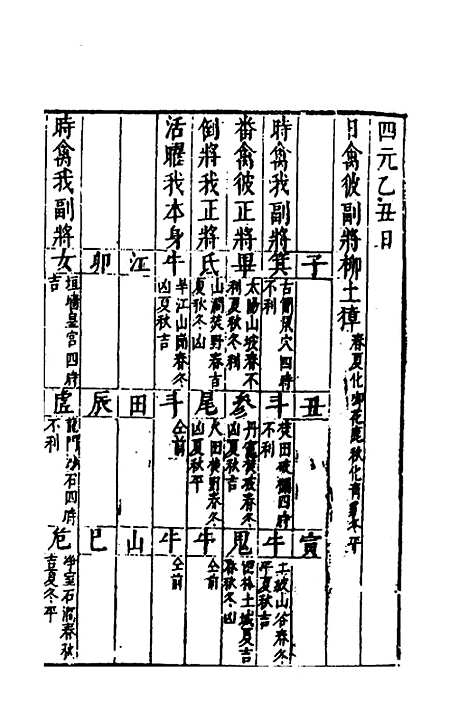 四元乙丑日
日禽彼副將柳土獐春夏化御花鹿秋化青 冬平
子 丑 寅
時禽我副將箕古簡鼠穴四時不利 斗 田破 四時不利 牛土坡山谷春冬平夏秋吉
番禽彼正將畢太陽山坡春不利夏秋冬利 参丹 坡春冬凶夏秋吉 鬼 林土城夏吉春秋冬凶
倒將我正將氐山澗焚野春吉夏秋冬凶 尾火田 野春冬凶夏秋平 牛仝前
活曜我本身牛半江山崗春冬凶夏秋吉 斗仝前 牛仝前
江 田 山
卯 辰 巳
時禽我副將女垣墻皇宮四時吉 虛龍門沙石四時不利 危净室石 春秋吉夏冬平